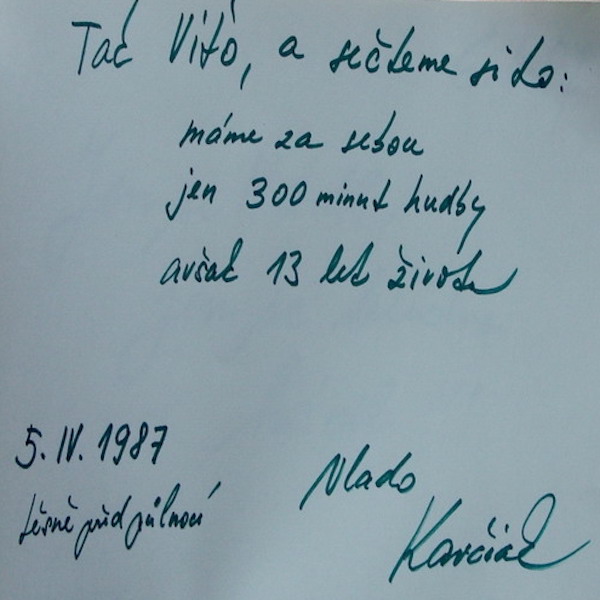 Tak Víťo, a sečteme si to:
máme za sebou
jen 300 minut hudby
avšak 13 let života
5. IV. 1987
těsně před půlnocí
Vlado
Kavčiak